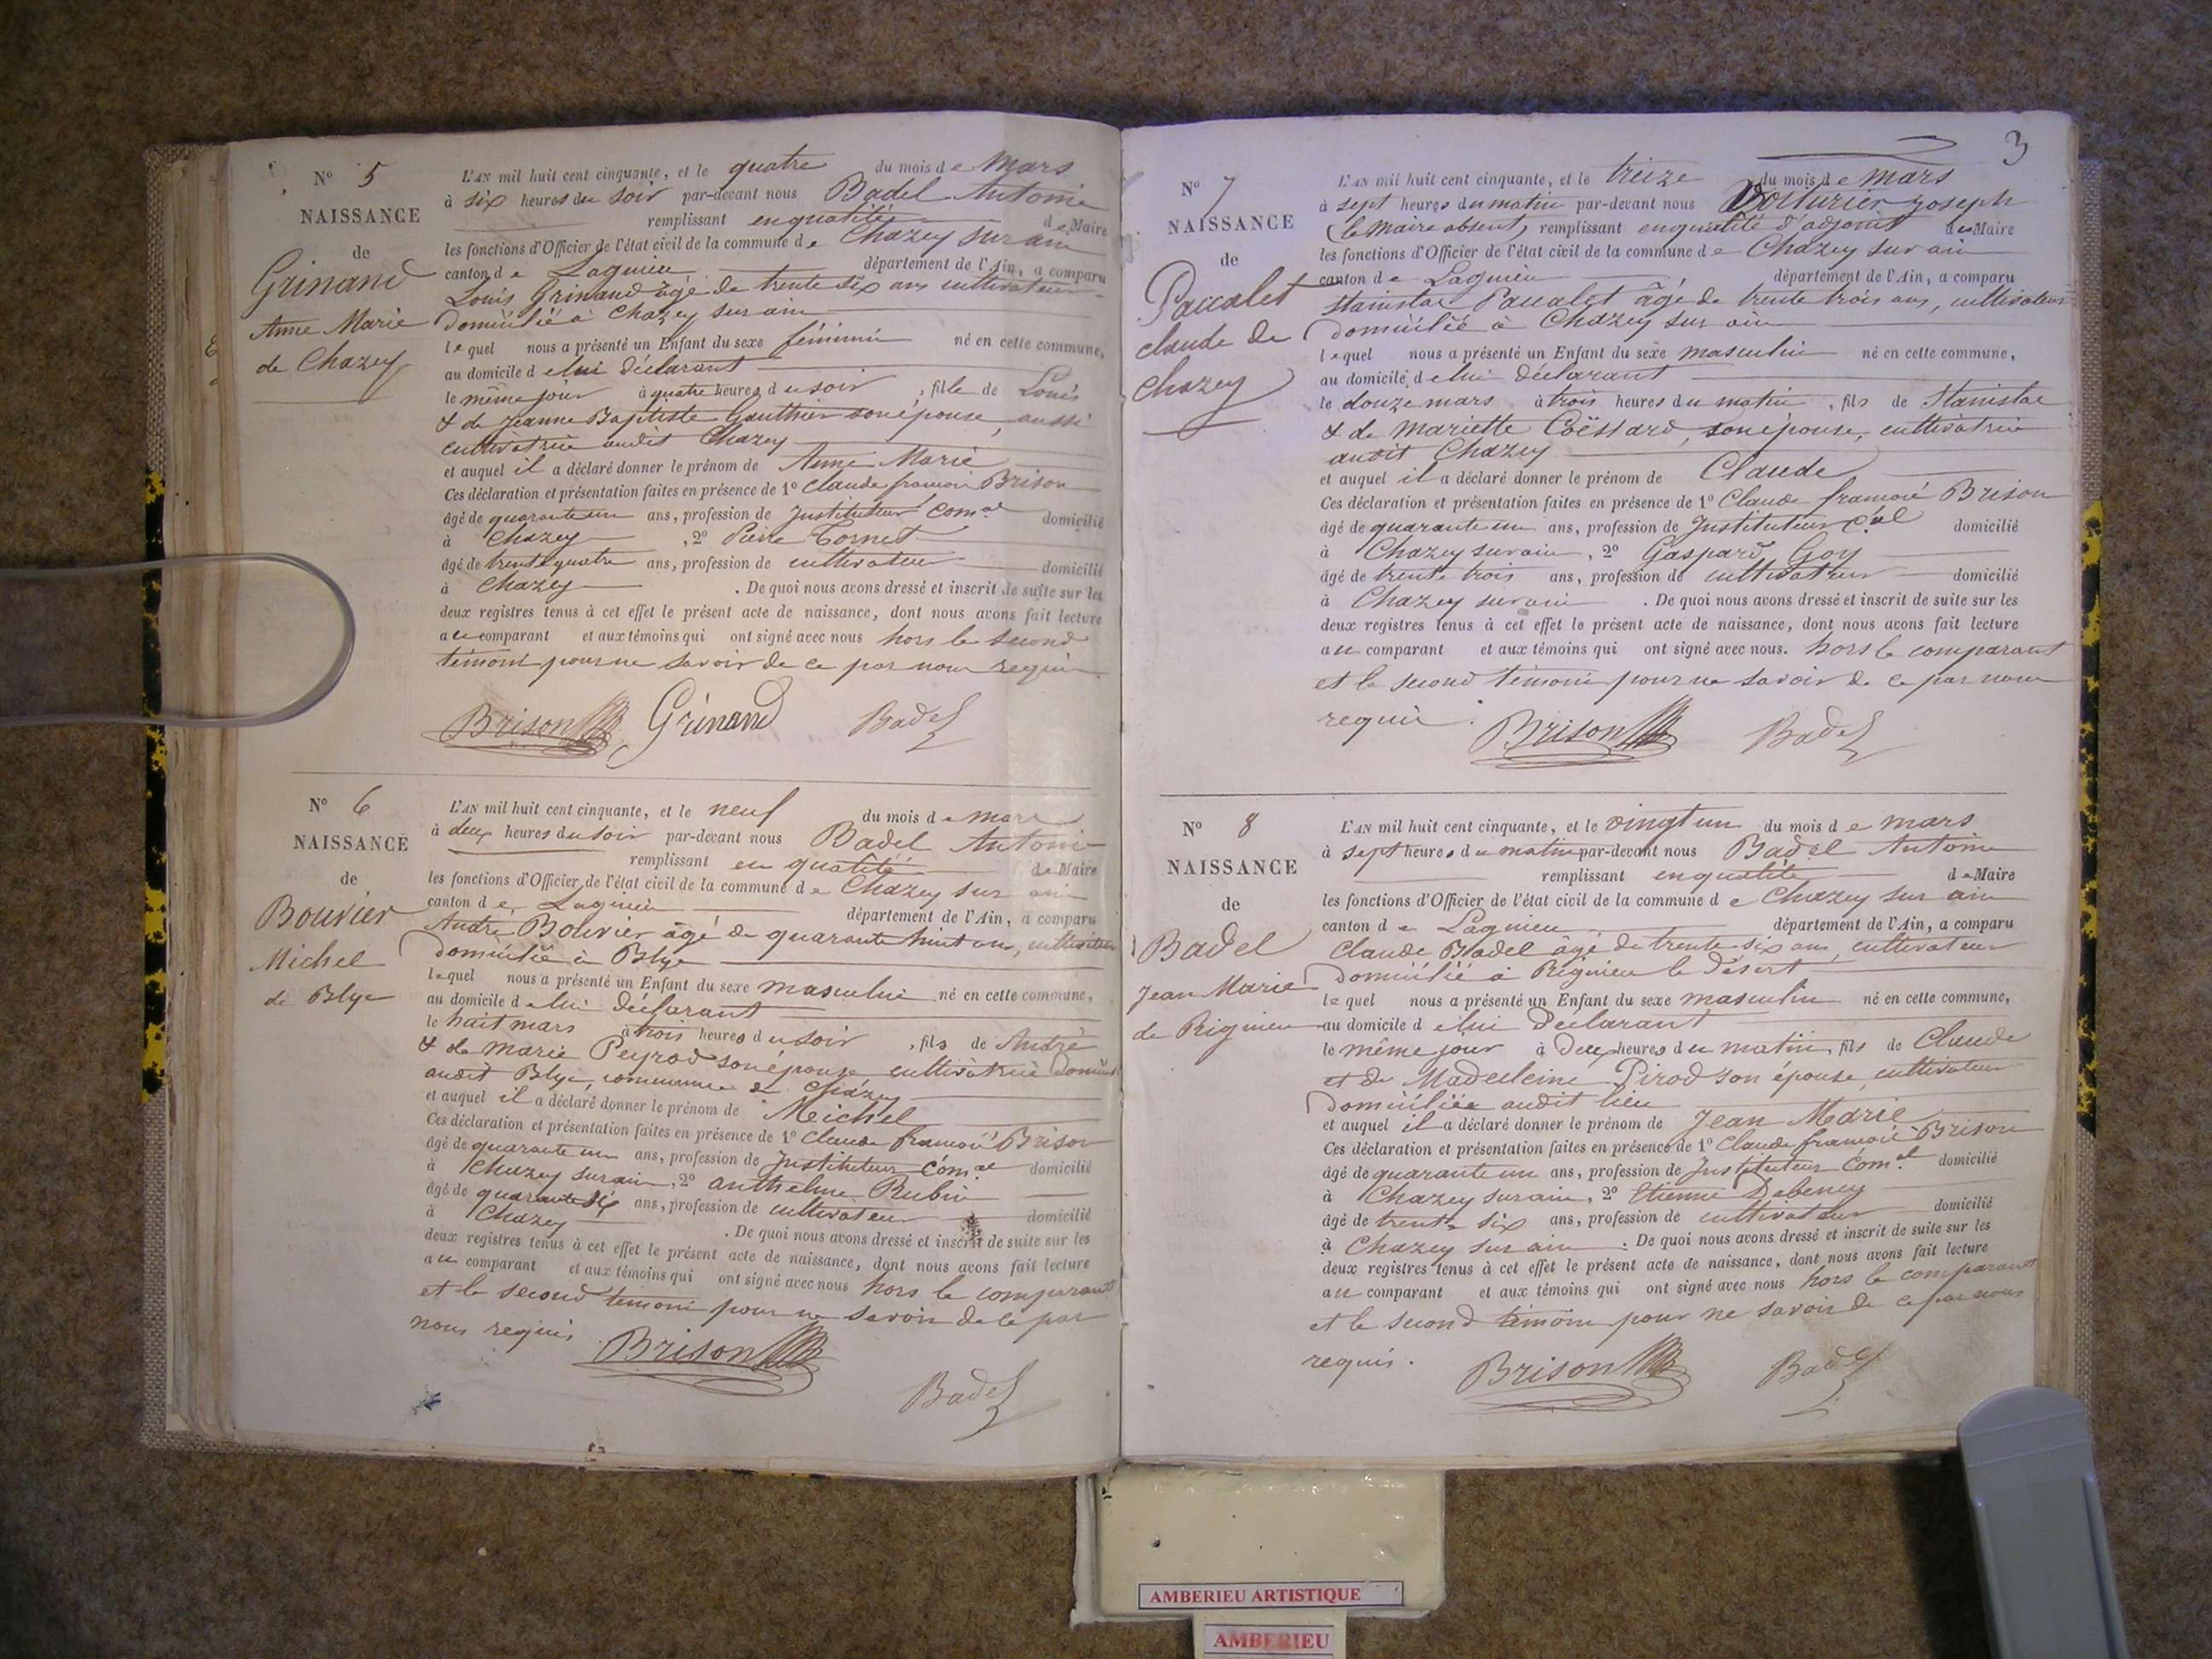 N° 5
NAISSANCE
de
Grinand
Anne Marie
de Chazey
L'AN mil huit cent cinquante, et le quatre du mois de Mars
à six heures du soir par-devant nous Badel Antoine
remplissant en qualité de Maire
les fonctions d'Officier de l'état civil de la commune de Chazey sur ain
canton de Lagnieu département de l'Ain, a comparu
Louis Grinand âgé de trente six ans cultivateur
domicilié à Chazey sur ain
lequel nous a présenté un Enfant du sexe féminin né en cette commune,
au domicile de lui déclarant
le même jour à quatre heures du soir, fille de Louis
& de Jeanne Baptiste Gauthier son épouse, aussi
cultivatrice audit Chazey
et auquel il a déclaré donner le prénom de Anne Marie
Ces déclaration et présentation faites en présence de 1° Claude françois Brison
âgé de quarante un ans, profession de Instituteur Com.al domicilié
à Chazey, 2° Pierre Tornet
âgé de trente quatre ans, profession de cultivateur domicilié
à Chazey. De quoi nous avons dressé et inscrit de suite sur les
deux registres tenus à cet effet le présent acte de naissance, dont nous avons fait lecture
au comparant et aux témoins qui ont signé avec nous hors le second
témoin pour ne savoir de ce par nous requis
Brison Grinand Badel
N° 6
NAISSANCE
de
Bouvier
Michel
de Blye
L'AN mil huit cent cinquante, et le neuf du mois de mars
à deux heures du soir par-devant nous Badel Antoine
remplissant en qualité de Maire
les fonctions d'Officier de l'état civil de la commune de Chazey sur ain
canton de Lagnieu département de l'Ain, a comparu
André Bouvier âgé de quarante huit ans, cultivateur
domicilié à Blye
lequel nous a présenté un Enfant du sexe masculin né en cette commune,
au domicile de lui déclarant
le huit mars à trois heures du soir, fils de André
& de marie Peyrod son épouse cultivatrice
audit Blye, commune de Chazey
et auquel il a déclaré donner le prénom de Michel
Ces déclaration et présentation faites en présence de 1° Claude françois Brison
âgé de quarante un ans, profession de Instituteur Com.al domicilié
à Chazey sur ain, 2° anthelme Rubin
âgé de quarante six ans, profession de cultivateur domicilié
à Chazey. De quoi nous avons dressé et inscrit de suite sur les
deux registres tenus à cet effet le présent acte de naissance, dont nous avons fait lecture
au comparant et aux témoins qui ont signé avec nous hors le comparant
et le second témoin pour ne savoir de ce par
nous requis.
Brison Badel
3
N° 7
NAISSANCE
de
Paccalet
claude de
chazey
L'AN mil huit cent cinquante, et le treize du mois de mars
à sept heures du matin par-devant nous Voiturier Joseph
(le Maire absent) remplissant en qualité d'adjoint de Maire
les fonctions d'Officier de l'état civil de la commune de Chazey sur ain
canton de Lagnieu département de l'Ain, a comparu
Stanislas Paccalet âgé de trente trois ans, cultivateur
domicilié à Chazey sur ain
lequel nous a présenté un Enfant du sexe masculin né en cette commune,
au domicile de lui déclarant
le douze mars à trois heures du matin, fils de Stanislas
& de Mariette Coëssard, son épouse, cultivatrice
audit Chazey
et auquel il a déclaré donner le prénom de Claude
Ces déclaration et présentation faites en présence de 1° Claude françois Brison
âgé de quarante un ans, profession de Instituteur C.al domicilié
à Chazey sur ain, 2° Gaspard Goy
âgé de trente trois ans, profession de cultivateur domicilié
à Chazey sur ain. De quoi nous avons dressé et inscrit de suite sur les
deux registres tenus à cet effet le présent acte de naissance, dont nous avons fait lecture
au comparant et aux témoins qui ont signé avec nous. hors le comparant
et le second témoin pour ne savoir de ce par nous
requis.
Brison Badel
N° 8
NAISSANCE
de
Badel
Jean Marie
de Rignieu
L'AN mil huit cent cinquante, et le vingt un du mois de mars
à sept heures du matin par-devant nous Badel Antoine
remplissant en qualité de Maire
les fonctions d'Officier de l'état civil de la commune de Chazey sur ain
canton de Lagnieu département de l'Ain, a comparu
Claude Badel âgé de trente six ans, cultivateur
domicilié à Rignieu le Désert
lequel nous a présenté un Enfant du sexe masculin né en cette commune,
au domicile de lui déclarant
le même jour à deux heures du matin, fils de Claude
et de Madeleine Pirod son épouse, cultivateurs
domiciliés audit lieu
et auquel il a déclaré donner le prénom de Jean Marie
Ces déclaration et présentation faites en présence de 1° Claude françois Brison
âgé de quarante un ans, profession de Instituteur Com.al domicilié
à Chazey sur ain, 2° Etienne Debeney
âgé de trente six ans, profession de cultivateur domicilié
à Chazey sur ain. De quoi nous avons dressé et inscrit de suite sur les
deux registres tenus à cet effet le présent acte de naissance, dont nous avons fait lecture
au comparant et aux témoins qui ont signé avec nous hors le comparant
et le second témoin pour ne savoir de ce par nous
requis.
Brison Badel
AMBERIEU ARTISTIQUE
AMBERIEU